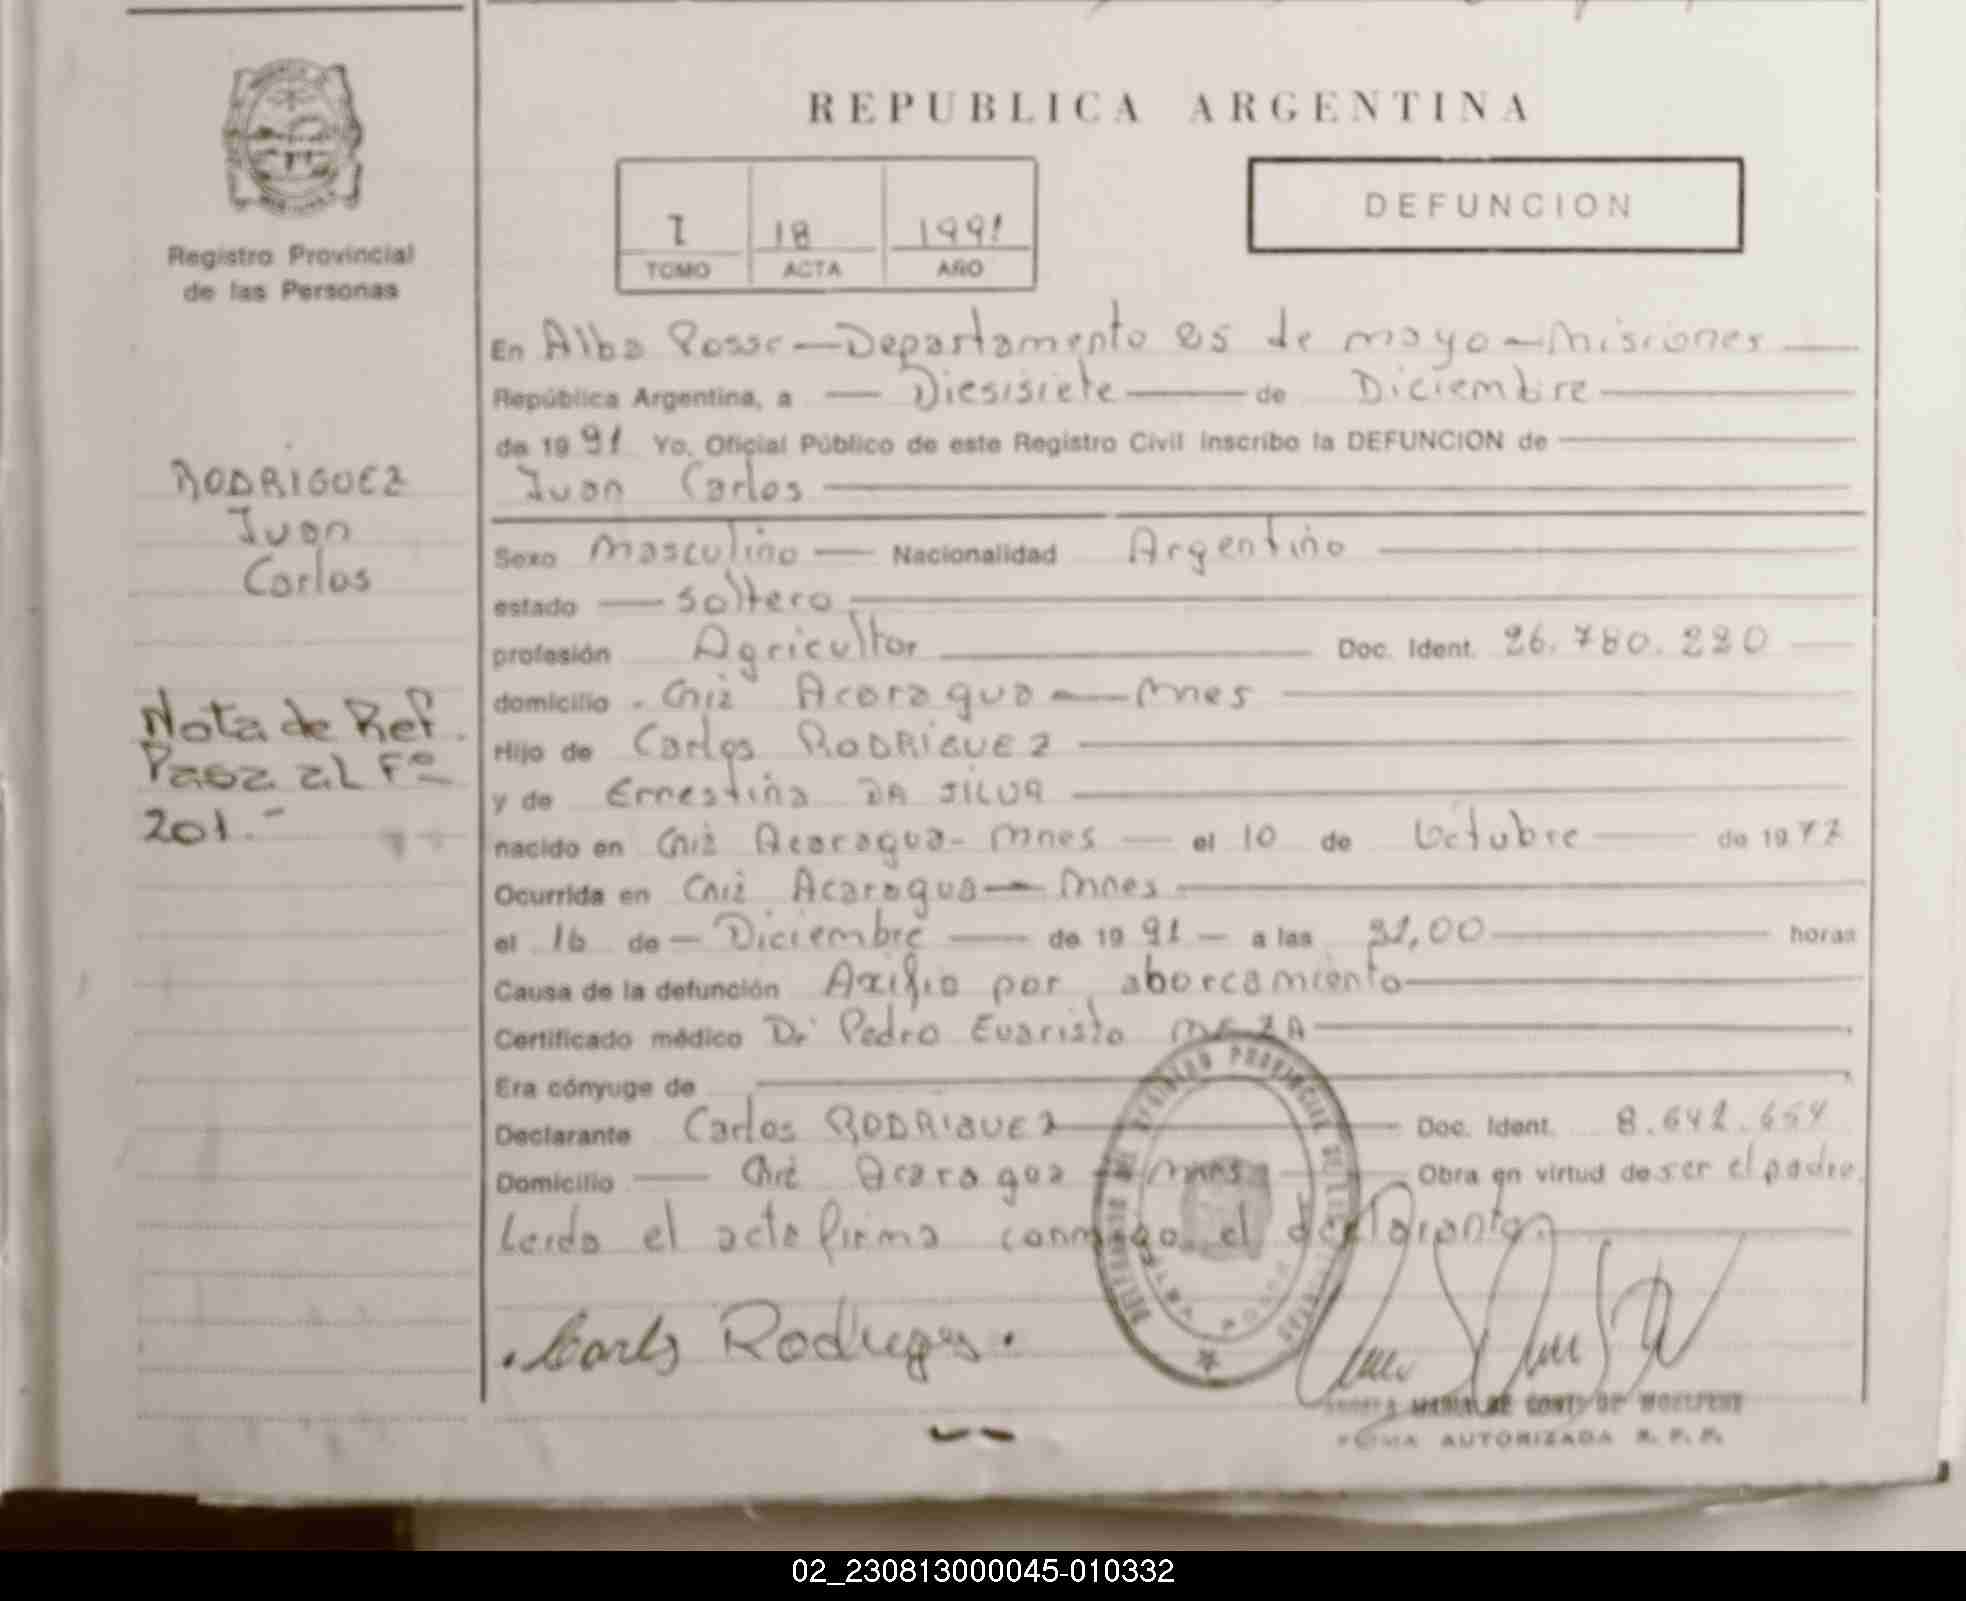 REPUBLICA ARGENTINA
Registro Provincial
de las Personas
I 18 1991
TOMO ACTA AÑO
DEFUNCION
RODRIGUEZ
Juan
Carlos
Nota de Ref.
Pasa al Fº
201.-
En Alba Posse — Departamento 25 de mayo — Misiones
República Argentina, a — Diesisiete — de Diciembre
de 1991 Yo, Oficial Público de este Registro Civil inscribo la DEFUNCION de
Juan Carlos
Sexo Masculino — Nacionalidad Argentino
estado — Soltero
profesión Agricultor Doc. Ident. 26.780.220
domicilio Acaragua — Mnes
Hijo de Carlos RODRIGUEZ
y de Ernestina DA SILVA
nacido en Acaragua - Mnes — el 10 de Octubre — de 1972
Ocurrida en Acaragua — Mnes
el 16 de — Diciembre — de 1991 — a las horas
Causa de la defunción Axifio por aborcamiento
Certificado médico Dr Pedro Evaristo MEZA
Era cónyuge de
Declarante Carlos RODRIGUEZ Doc. Ident. 8.642.654
Domicilio — Acaragua — Mnes — Obra en virtud de ser el padre.
Leido el acta firma conmigo el declarante.
Carlos Rodrigues.
MARIA
FIRMA AUTORIZADA R. P. P.
02_230813000045-010332